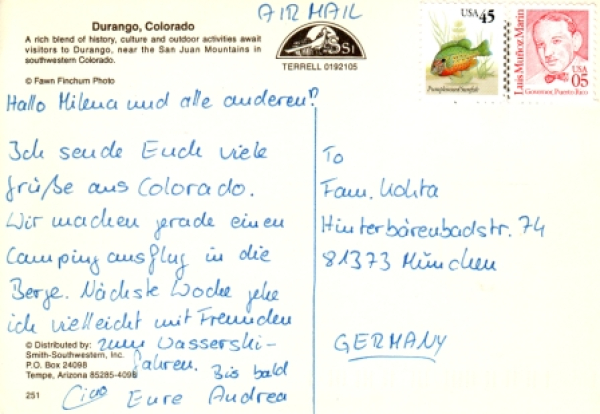 Durango, Colorado
A rich blend of history, culture and outdoor activities await
visitors to Durango, near the San Juan Mountains in
southwestern Colorado.
© Fawn Finchum Photo
AIR MAIL
SSI
TERRELL 0192105
USA 45
Pumpkinseed Sunfish
Luis Muñoz Marín
Governor, Puerto Rico
USA
05
Hallo Milena und alle anderen!
Ich sende Euch viele
Grüße aus Colorado.
Wir machen gerade einen
Campingausflug in die
Berge. Nächste Woche gehe
ich vielleicht mit Freunden
zum Wasserski-
fahren. Bis bald
Ciao Eure Andrea
© Distributed by:
Smith-Southwestern, Inc.
P.O. Box 24098
Tempe, Arizona 85285-4098
251
To
Fam. Kohta
Hinterbärenbadstr. 74
81373 München
GERMANY